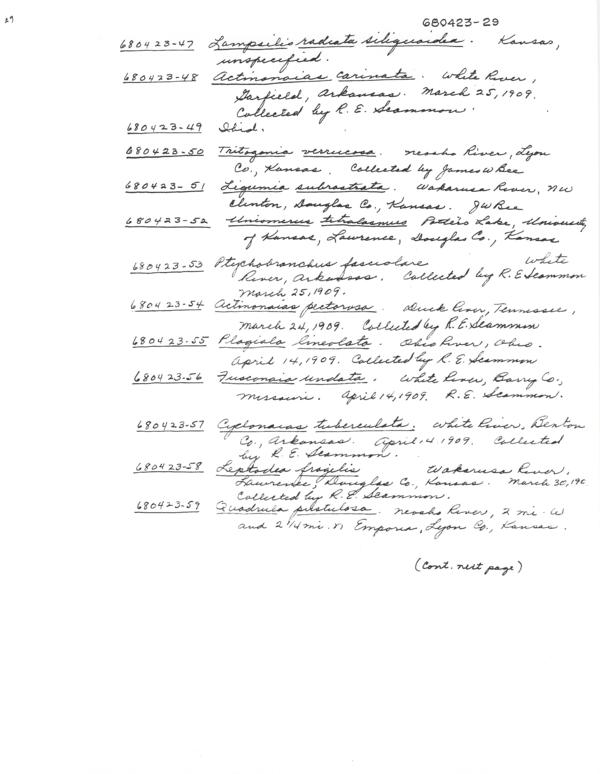 29
680423-29
680423-47 Lampsilis radiata siliquoidea. Kansas,
unspecified.
680423-48 Actinonaias carinata. White River,
Garfield, Arkansas. March 25, 1909.
Collected by R. E. Scammon.
680423-49 Ibid.
680423-50 Tritogonia verrucosa. Neosho River, Lyon
Co., Kansas. Collected by James W Bee
680423-51 Ligumia subrostrata. Wakarusa River, NW
Clinton, Douglas Co., Kansas. JW Bee
680423-52 Uniomerus tetralasmus Potter's Lake, University
of Kansas, Lawrence, Douglas Co., Kansas
680423-53 Ptychobranchus fasciolare White
River, Arkansas. Collected by R. E Scammon
March 25, 1909.
680423-54 Actinonaias pectorosa. Duck River, Tennessee,
March 24, 1909. Collected by R. E. Scammon
680423-55 Plagiola lineolata. Ohio River, Ohio.
April 14, 1909. Collected by R. E. Scammon
680423-56 Fusconaia undata. White River, Barry Co.,
Missouri. April 14, 1909. R. E. Scammon.
680423-57 Cyclonaias tuberculata. White River, Benton
Co., Arkansas. April 4 1909. Collected
by R. E. Scammon.
680423-58 Leptodea fragilis Wakarusa River,
Lawrence, Douglas Co., Kansas. March 30, 190
Collected by R. E. Scammon.
680423-59 Quadrula pustulosa. Neosho River, 2 mi. W
and 2 1/4 mi. N Emporia, Lyon Co., Kansas.
(Cont. next page)